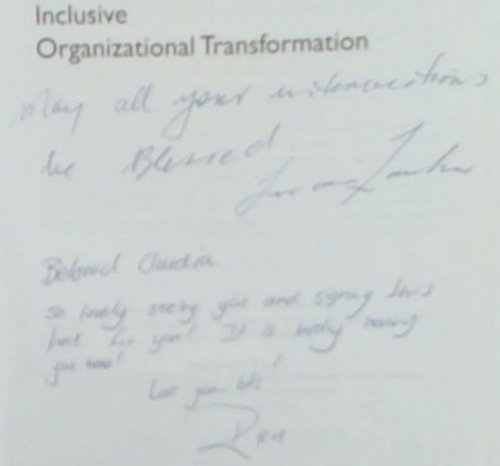 Inclusive
Organizational Transformation
May all your interventions
be Blessed
Beloved Claudia
so lovely seeing you and signing this
book for you! It is lovely having
you here!
Love you lots!